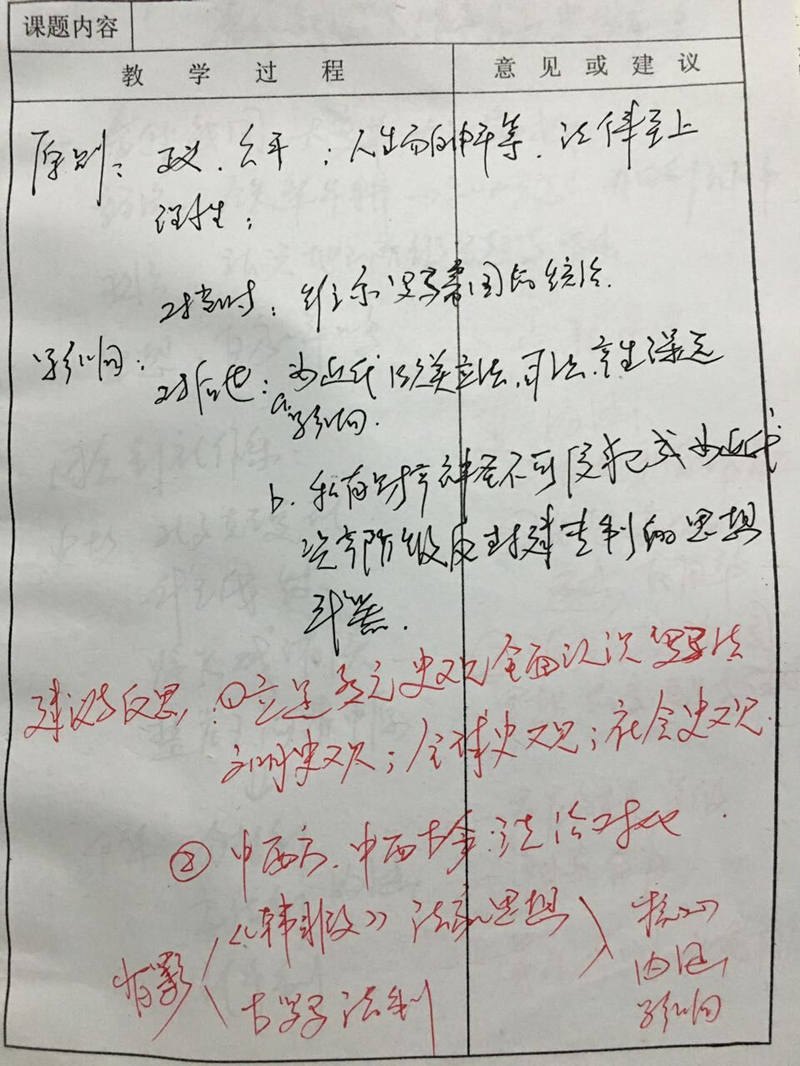 课题内容
教学过程
意见或建议
原则：正义、公平；人生而自由平等、法律至上
理性；
对当时：维系罗马帝国的统治.
影响：
对后世：a.为近代欧美立法、司法产生深远
影响.
b.私有财产神圣不可侵犯成为近代
资产阶级反封建专制的思想
武器.
建议与反思：①立足多元史观全面认识罗马法
文明史观；全球史观；社会史观.
②中西方、中西古今法治对比.
《韩非子》法家思想
背景
古罗马法制
核心
内涵
影响